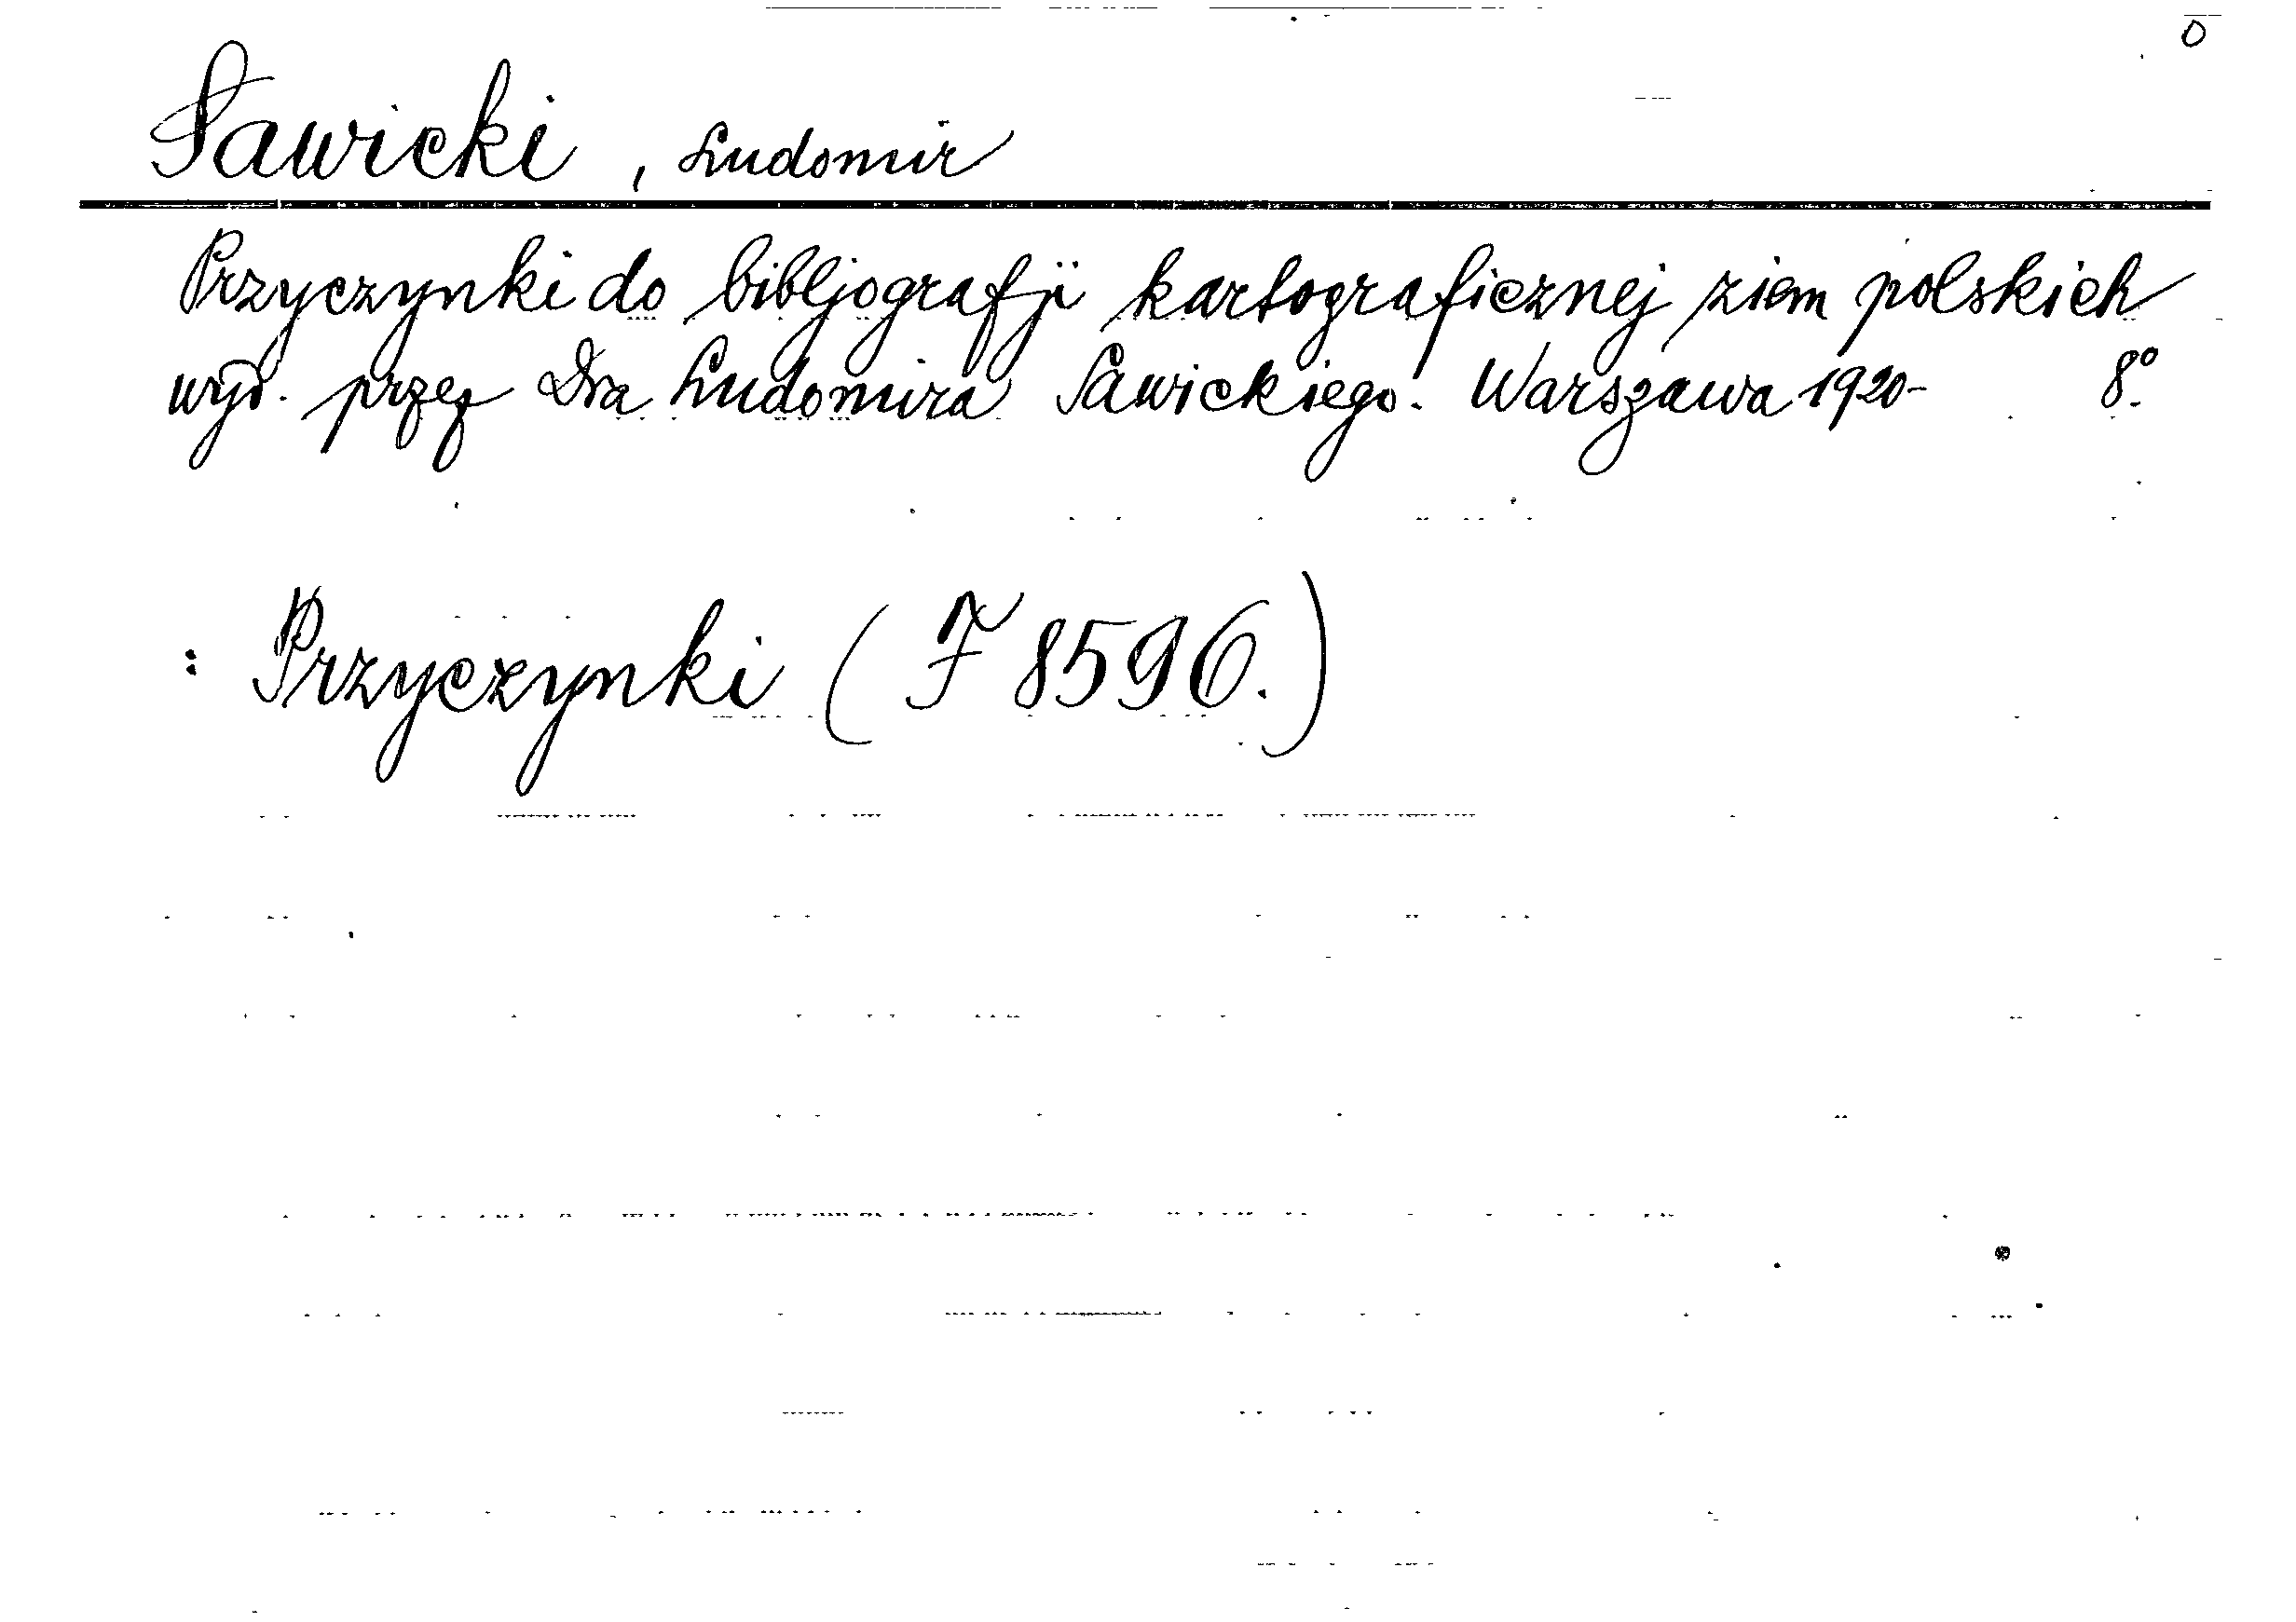 Sawicki, Ludomir
Przyczynki do bibljografji kartograficznej ziem polskich
wyd. przez Dra Ludomira Sawickiego. Warszawa 1920- 8º
: Przyczynki (F 8596.)